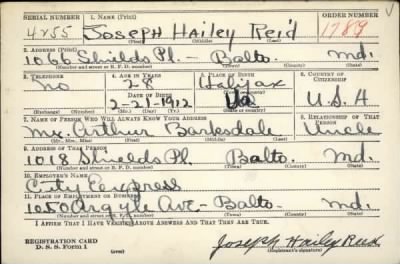 SERIAL NUMBER 1. NAME (Print) ORDER NUMBER
4255 Joseph Hailey Reid 1789
(First) (Middle) (Last)
2. ADDRESS (Print)
1066 Shields Pl. - Balto. Md.
(Number and street or R. F. D. number) (Town) (County) (State)
3. TELEPHONE 4. AGE IN YEARS 5. PLACE OF BIRTH 6. COUNTRY OF CITIZENSHIP
No 28 Halifax
DATE OF BIRTH
2-21-1912 Va U.S.A
(Exchange) (Number) (Mo.) (Day) (Yr.) (State or country)
7. NAME OF PERSON WHO WILL ALWAYS KNOW YOUR ADDRESS 8. RELATIONSHIP OF THAT PERSON
Mr. Arthur Barksdale Uncle
(Mr., Mrs., Miss) (First) (Middle) (Last)
9. ADDRESS OF THAT PERSON
1018 Shields Pl. Balto. Md.
(Number and street or R. F. D. number) (Town) (County) (State)
10. EMPLOYER'S NAME
City Express
11. PLACE OF EMPLOYMENT OR BUSINESS
1050 Argyle Ave - Balto. Md.
(Number and street or R. F. D. number) (Town) (County) (State)
I AFFIRM THAT I HAVE VERIFIED ABOVE ANSWERS AND THAT THEY ARE TRUE.
REGISTRATION CARD
D. S. S. Form 1 (over) Joseph Hailey Reid
(Registrant's signature)